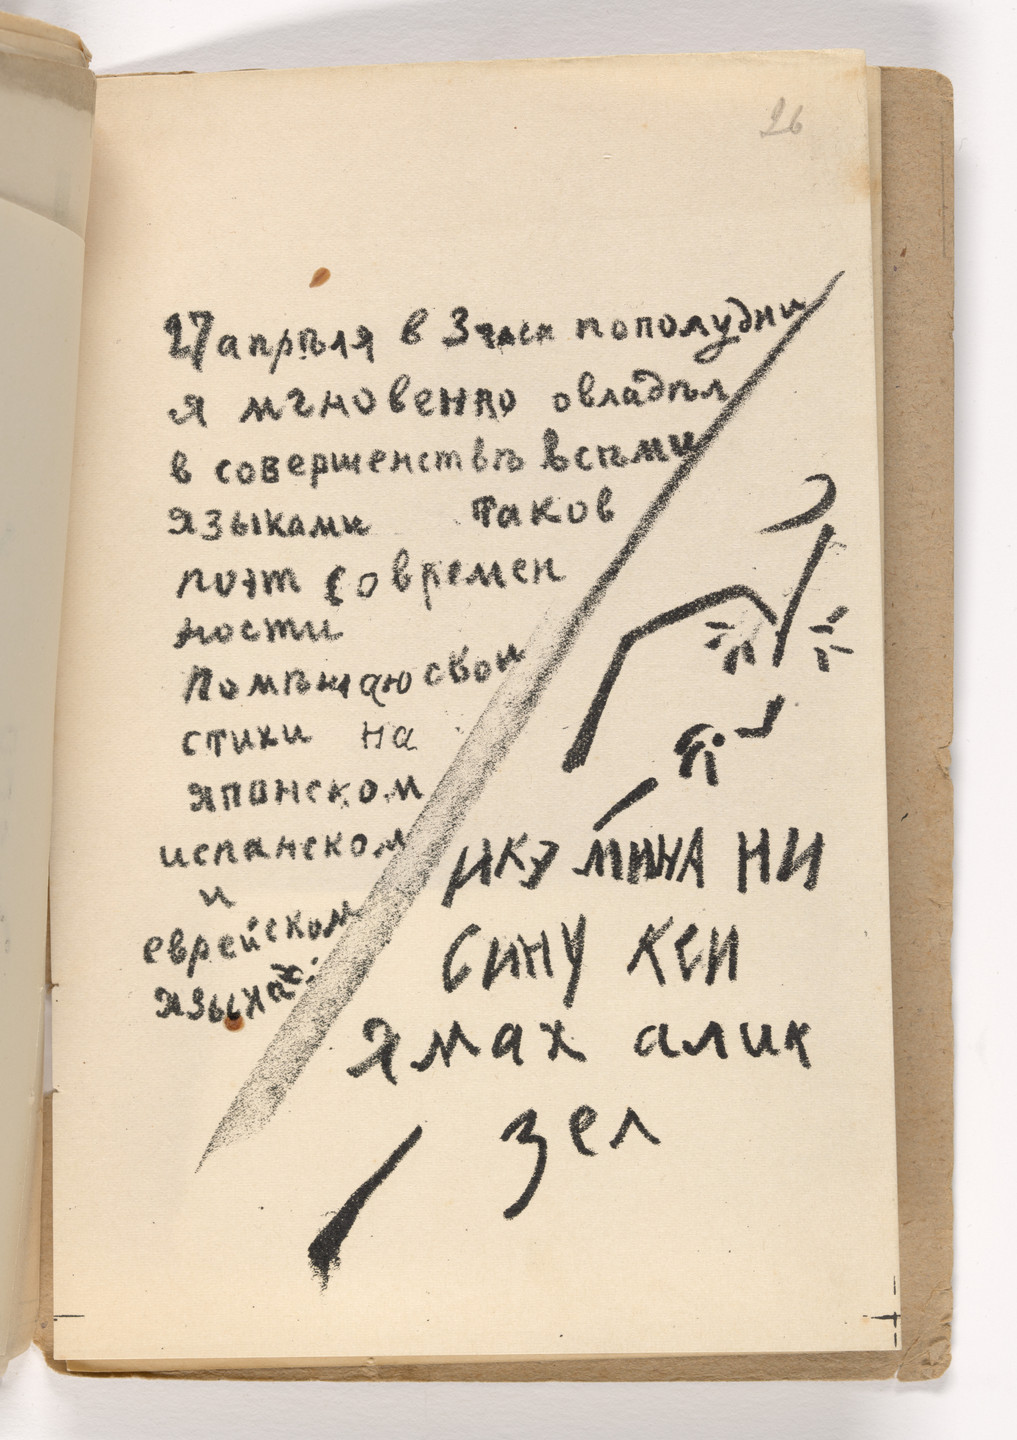 26
27 апрѣля в 3 часа пополудни
я мгновенно овладѣл
в совершенствѣ всѣми
языками таков
поэт современ
ности
помѣщаю свои
стихи на
японском
испанском
и
еврейском
языках:
икэ мина ни
сину кси
ямах алик
зел